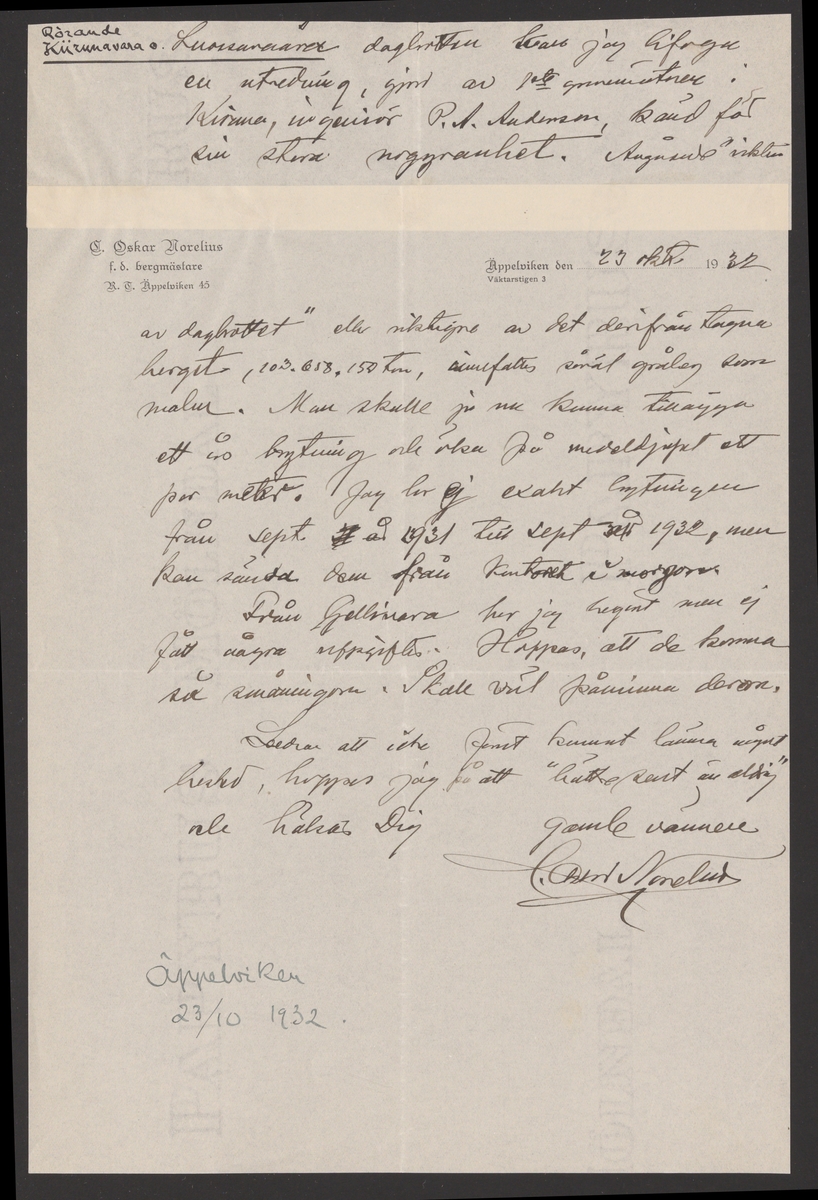 Rörande
Kiirunavara o. Luossavaara dagbrotten kan jag bifoga
en utredning, gjord av 1ste gruvmätaren i
Kiruna, ingeniör P. A. Anderson, känd för
sin stora nogranhet. Angående "vikten
C. Oskar Norelius
f. d. bergmästare
R. T. Äppelviken 45
Äppelviken den 23 okt. 1932
Väktarstigen 3
av dagbrottet" eller riktigare av det derifrån tagna
berget, 103.658.150 ton, innefattes såväl gråberg som
malm. Man skulle ju nu kunna tillägga
ett års brytning och öka på medeldjupet ett
par meter. Jag har ej exakt brytningen
från sept 1931 till sept 1932, men
kan sända dem från kontoret i morgon.
Från Gellivara har jag begärt men ej
fått några uppgifter. Hoppas, att de komma
så småningom. Skall väl påminna derom.
Ledsen att icke förut kunnat lämna något
besked, hoppas jag på att "bättre sent än aldrig"
och hälsar Dig gamle vännen
C. Oskar Norelius
Äppelviken
23/10 1932.